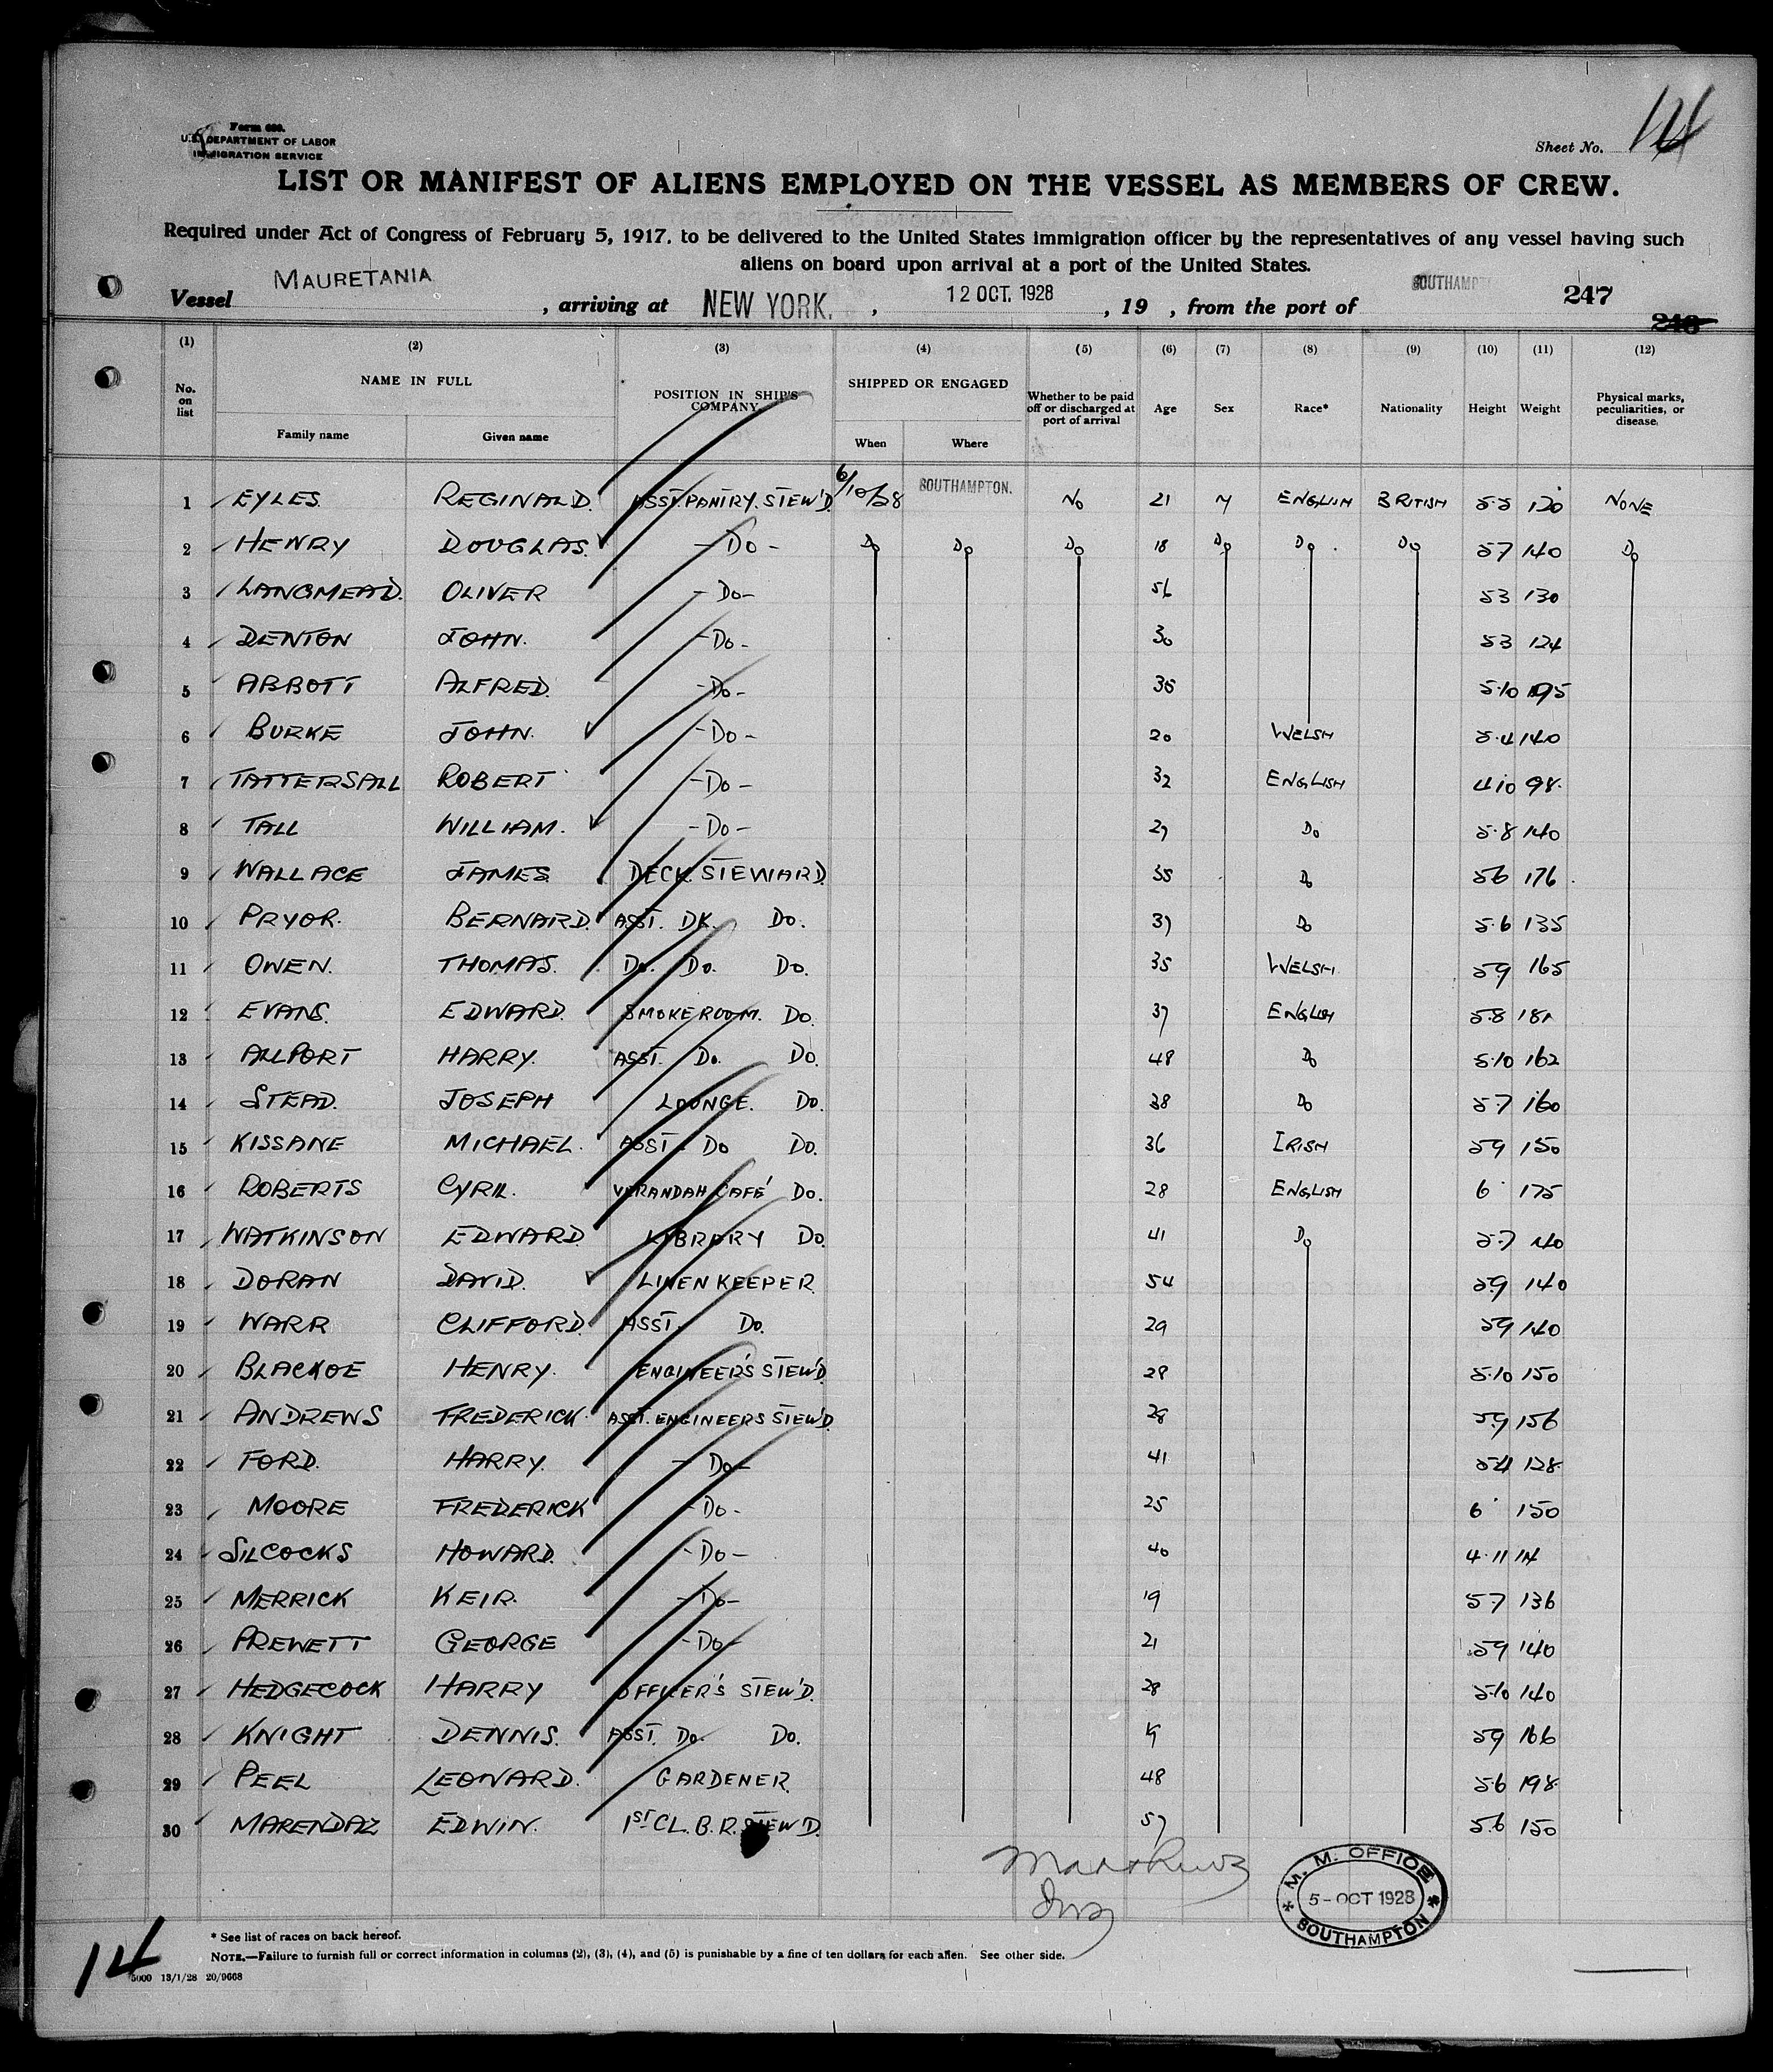 Form 680.
U.S. DEPARTMENT OF LABOR
IMMIGRATION SERVICE
Sheet No. 14
LIST OR MANIFEST OF ALIENS EMPLOYED ON THE VESSEL AS MEMBERS OF CREW.
Required under Act of Congress of February 5, 1917, to be delivered to the United States immigration officer by the representatives of any vessel having such
aliens on board upon arrival at a port of the United States.
Vessel MAURETANIA, arriving at NEW YORK., 12 OCT. 1928, 19 , from the port of SOUTHAMPTON 247
248
(1) (2) (3) (4) (5) (6) (7) (8) (9) (10) (11) (12)
No. on list NAME IN FULL Family name Given name POSITION IN SHIP'S COMPANY SHIPPED OR ENGAGED When Where Whether to be paid off or discharged at port of arrival Age Sex Race* Nationality Height Weight Physical marks, peculiarities, or disease
1 EYLES REGINALD. ASST. PANTRY. STEW'D 6/10/28 SOUTHAMPTON. No 21 M ENGLISH BRITISH 5.5 120 NONE
2 HENRY DOUGLAS. -Do- Do Do Do 18 Do Do Do 57 140 Do
3 LANGMEAD. OLIVER -Do- 56 53 130
4 DENTON JOHN. -Do- 30 53 124
5 ABBOTT ALFRED. -Do- 36 5.10 195
6 BURKE JOHN. -Do- 20 WELSH 5.4 140
7 TATTERSALL ROBERT -Do- 32 ENGLISH 4.10 98.
8 TALL WILLIAM. -Do- 27 Do 5.8 140
9 WALLACE JAMES DECK. STEWARD. 35 Do 56 176
10 PRYOR. BERNARD. ASST. DK. Do. 37 Do 5.6 135
11 OWEN. THOMAS. Do. Do. Do. 35 WELSH. 59 165
12 EVANS. EDWARD. SMOKEROOM. Do. 37 ENGLISH 5.8 181
13 ALLPORT HARRY. ASST. Do. Do. 48 Do 5.10 162
14 STEAD. JOSEPH LOUNGE. Do. 38 Do 57 160
15 KISSANE MICHAEL. ASST. Do Do. 36 IRISH 59 150
16 ROBERTS CYRIL. VERANDAH CAFÉ Do. 28 ENGLISH 6 175
17 WATKINSON EDWARD. LIBRARY Do. 41 Do 5.7 140
18 DORAN DAVID. LINEN KEEPER 54 59 140
19 WARR CLIFFORD. ASST. Do. 29 59 140
20 BLACKOE HENRY. ENGINEER'S STEW'D. 28 5.10 150
21 ANDREWS FREDERICK. ASST. ENGINEERS STEW'D. 28 59 156
22 FORD. HARRY. -Do- 41 54 128.
23 MOORE FREDERICK -Do- 25 6 150
24 SILCOCKS HOWARD. -Do- 40 4.11
25 MERRICK KEIR. -Do- 19 57 136
26 PREWETT GEORGE -Do- 21 59 140
27 HEDGECOCK HARRY OFFICER'S STEW'D. 28 5.10 140
28 KNIGHT DENNIS. ASST. Do. Do. 19 59 166
29 PEEL LEONARD. GARDENER. 48 56 198.
30 MARENDAZ EDWIN. 1ST CL. B.R. STEW'D. 57 5.6 150
M. M. OFFICE
5 - OCT 1928
SOUTHAMPTON
* See list of races on back hereof.
NOTE.—Failure to furnish full or correct information in columns (2), (3), (4), and (5) is punishable by a fine of ten dollars for each alien. See other side.
14
5000 13/1/28 20/9668